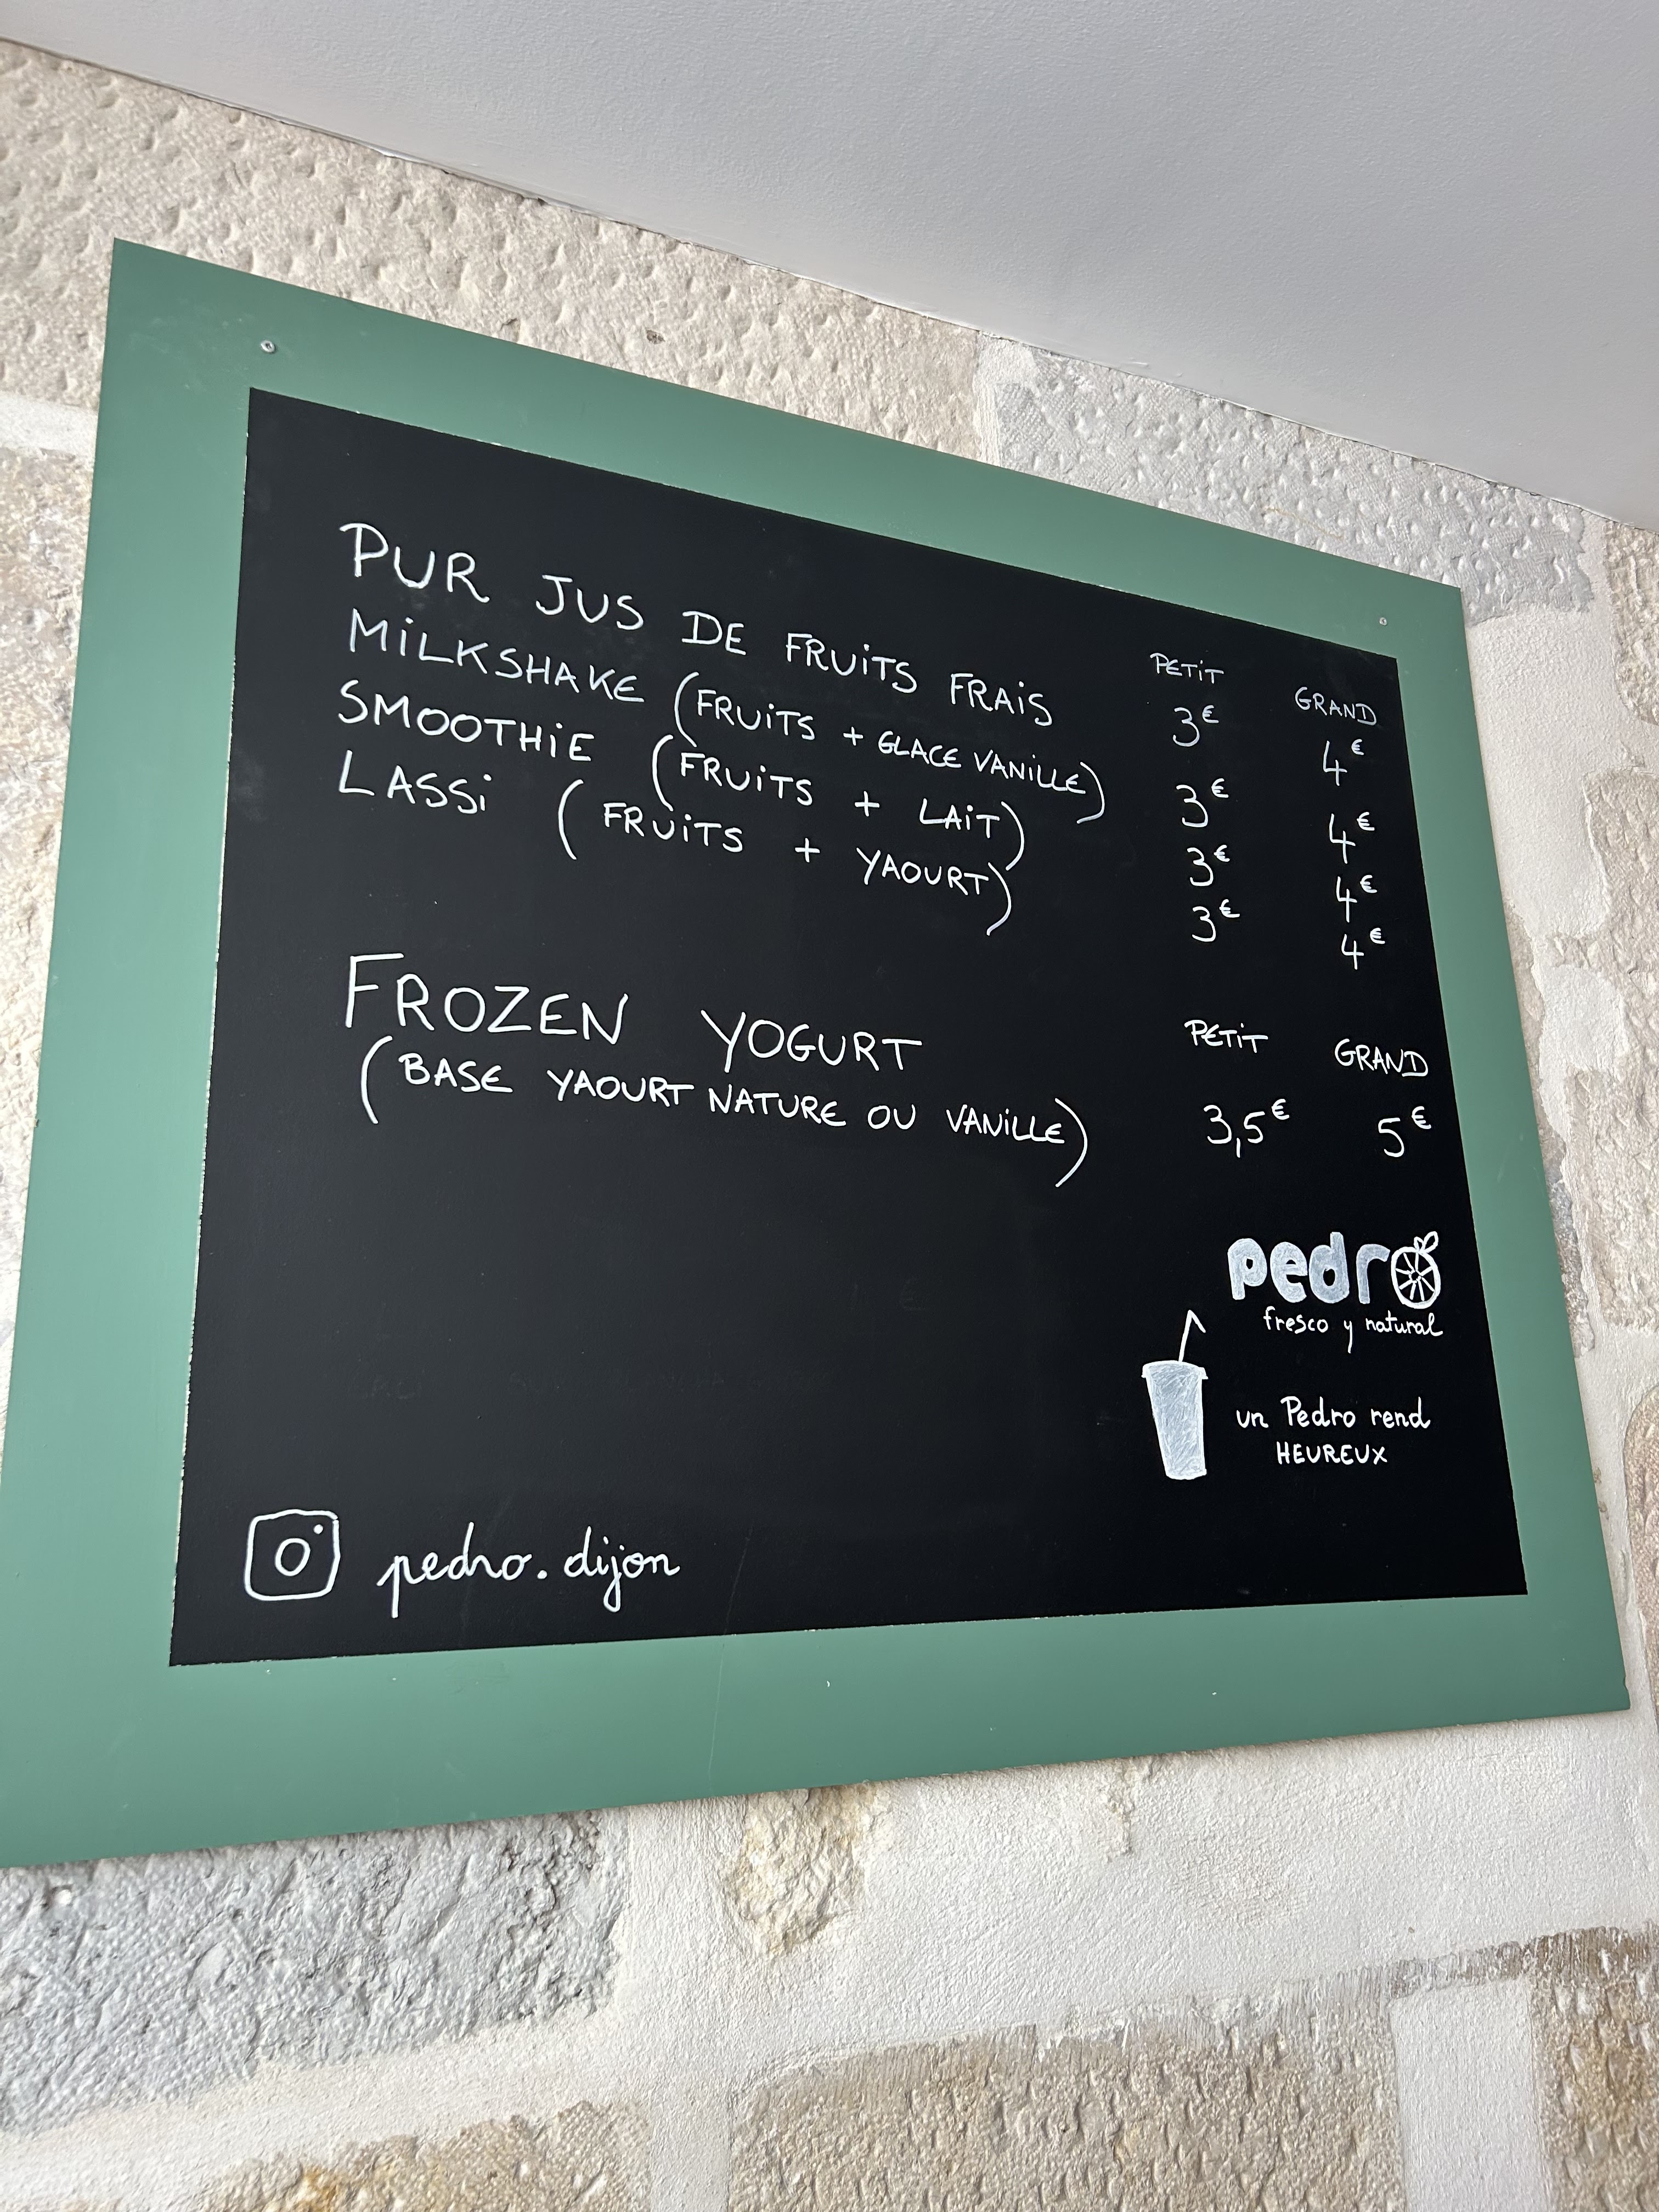 PETIT GRAND
PUR JUS DE FRUITS FRAIS 3€ 4€
MILKSHAKE (FRUITS + GLACE VANILLE) 3€ 4€
SMOOTHIE (FRUITS + LAIT) 3€ 4€
LASSI (FRUITS + YAOURT) 3€ 4€
FROZEN YOGURT PETIT GRAND
(BASE YAOURT NATURE OU VANILLE) 3,5€ 5€
pedro
fresco y natural
un Pedro rend
HEUREUX
pedro.dijon